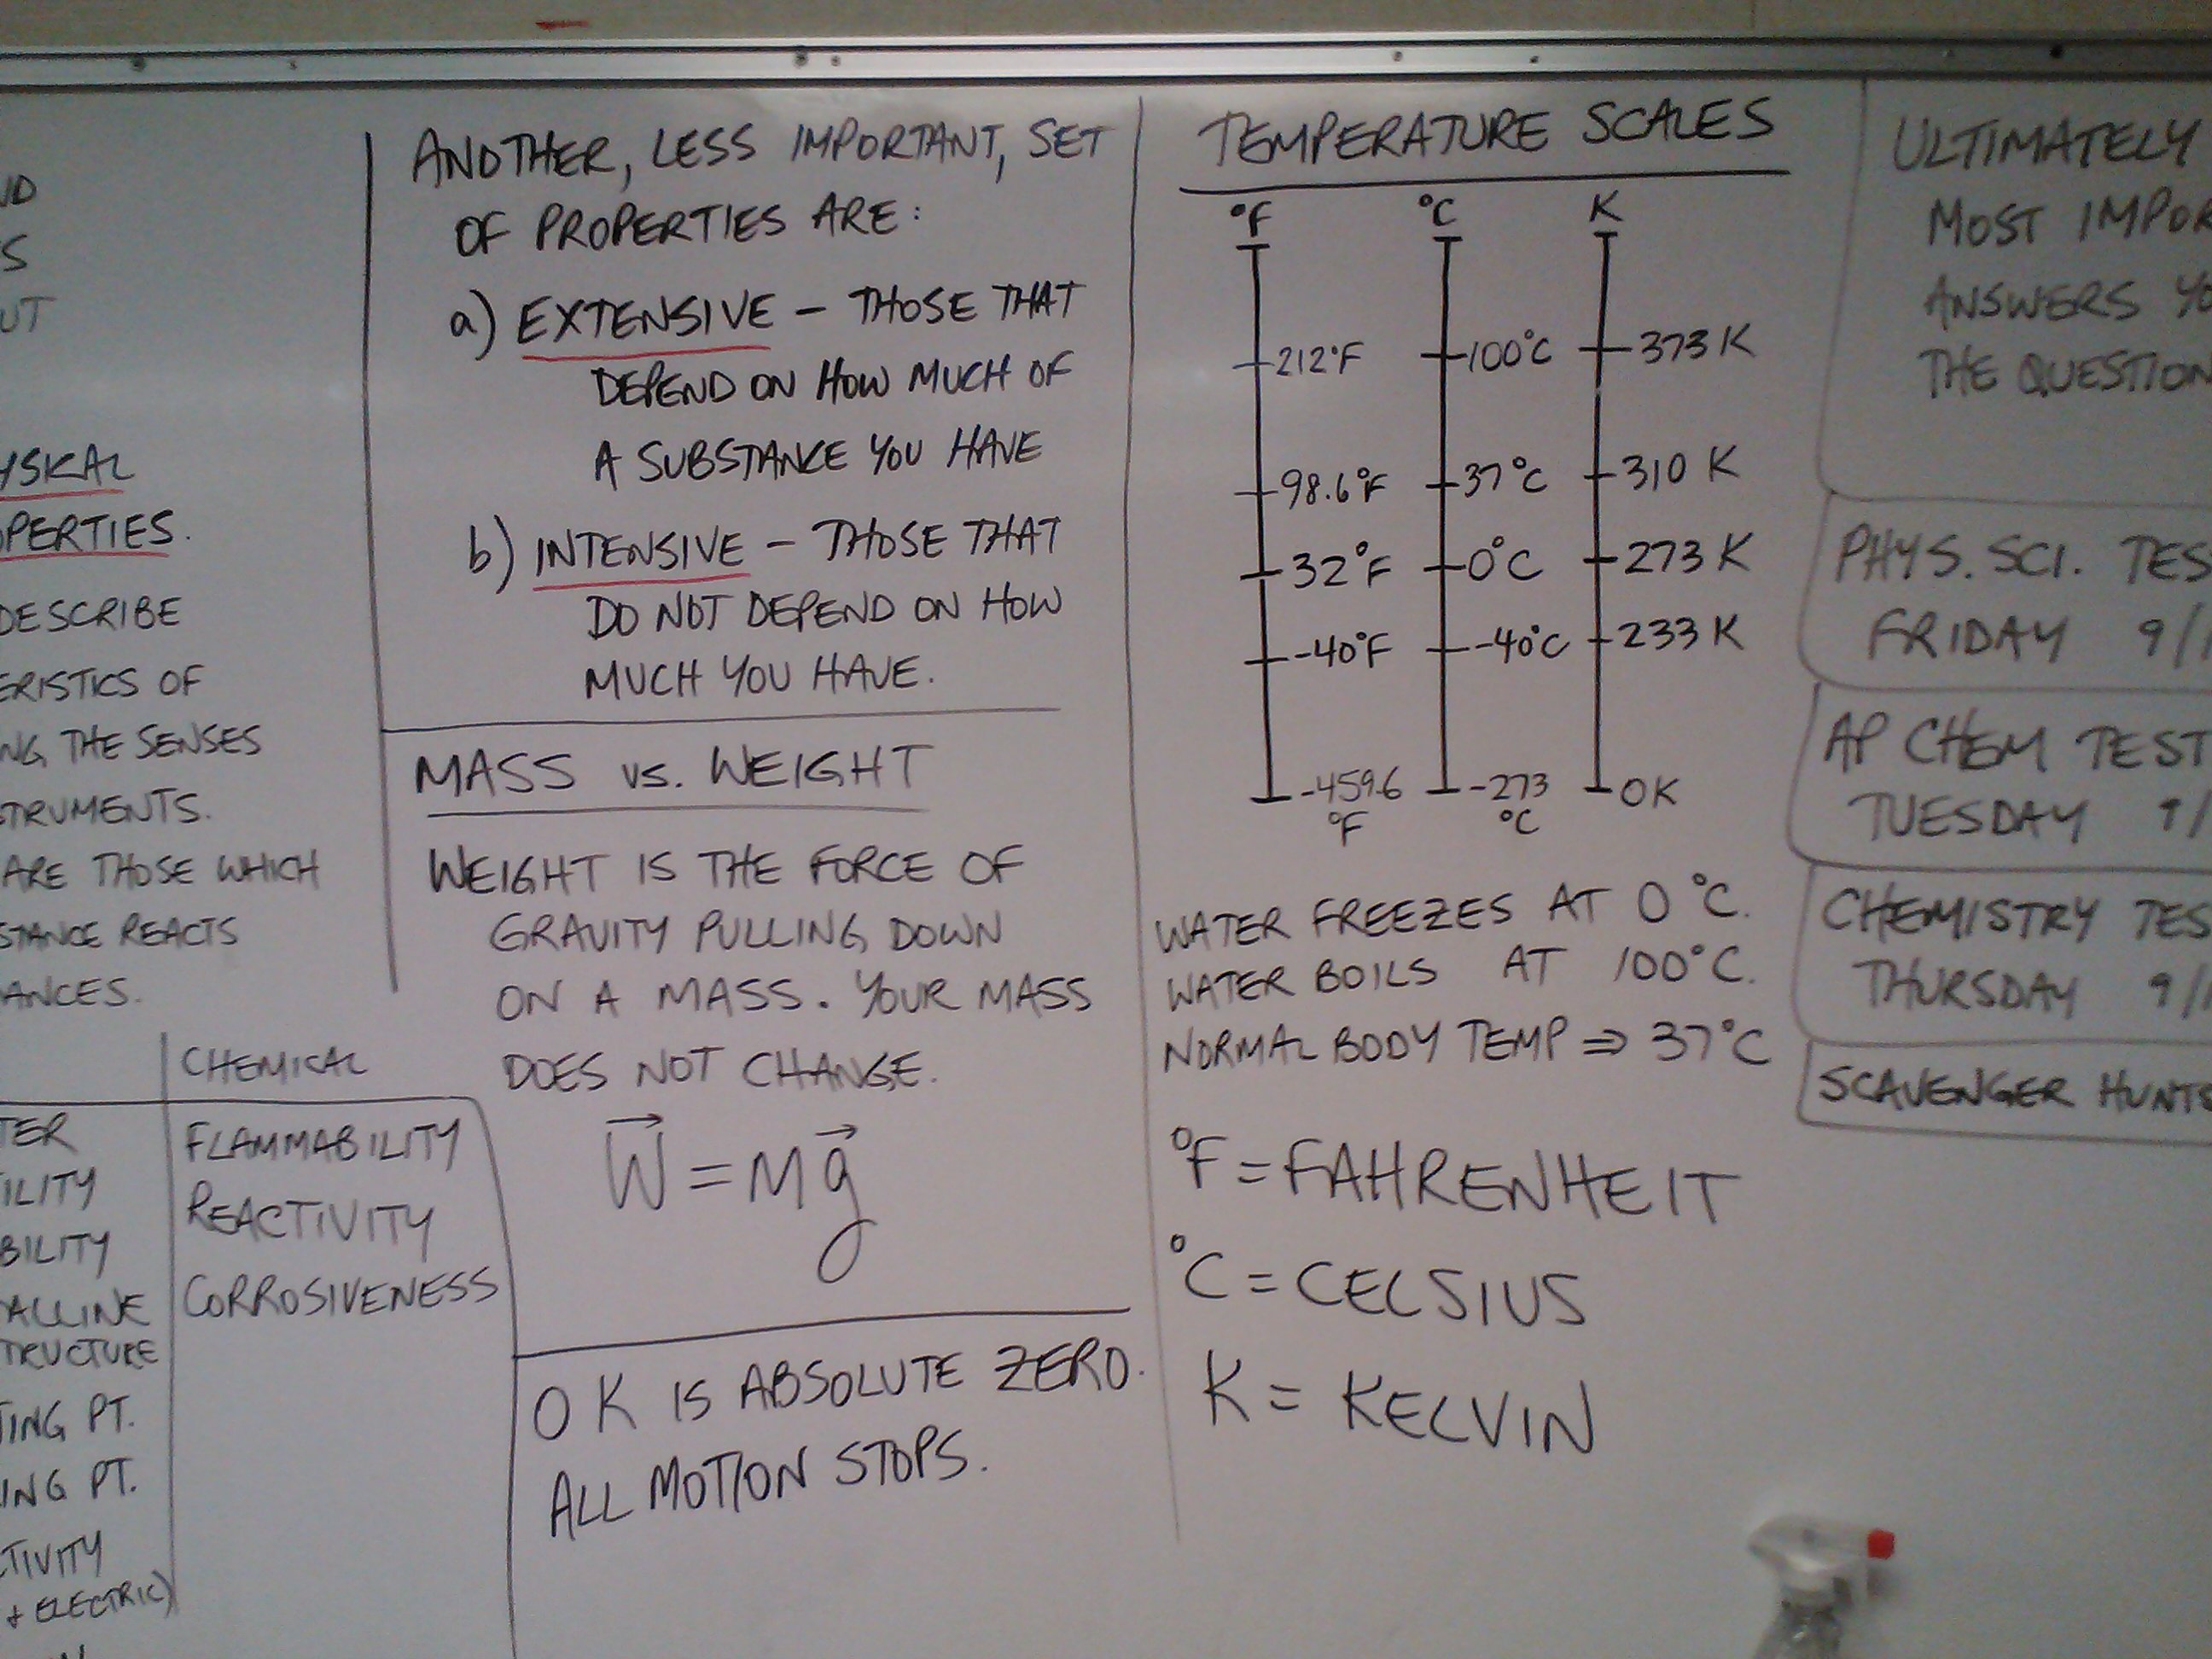 ND
S
UT
YSICAL
OPERTIES.
DESCRIBE
ERISTICS OF
NG THE SENSES
STRUMENTS.
ARE THOSE WHICH
STANCE REACTS
ANCES.
CHEMICAL
TER
ILITY
BILITY
ALLINE
TRUCTURE
TING PT.
ING PT.
TIVITY
+ ELECTRIC)
FLAMMABILITY
REACTIVITY
CORROSIVENESS
ANOTHER, LESS IMPORTANT, SET
OF PROPERTIES ARE:
a) EXTENSIVE - THOSE THAT
DEPEND ON HOW MUCH OF
A SUBSTANCE YOU HAVE
b) INTENSIVE - THOSE THAT
DO NOT DEPEND ON HOW
MUCH YOU HAVE.
MASS vs. WEIGHT
WEIGHT IS THE FORCE OF
GRAVITY PULLING DOWN
ON A MASS. YOUR MASS
DOES NOT CHANGE.
W⃗ = mg⃗
0 K IS ABSOLUTE ZERO.
ALL MOTION STOPS.
TEMPERATURE SCALES
°F °C K
212°F 100°C 373 K
98.6°F 37°C 310 K
32°F 0°C 273 K
-40°F -40°C 233 K
-459.6 -273 0K
°F °C
WATER FREEZES AT 0°C.
WATER BOILS AT 100°C.
NORMAL BODY TEMP ⇒ 37°C
°F = FAHRENHEIT
°C = CELSIUS
K = KELVIN
ULTIMATELY
MOST IMPOR
ANSWERS YO
THE QUESTION
PHYS. SCI. TES
FRIDAY 9/1
AP CHEM TEST
TUESDAY 9/
CHEMISTRY TES
THURSDAY 9/1
SCAVENGER HUNTS